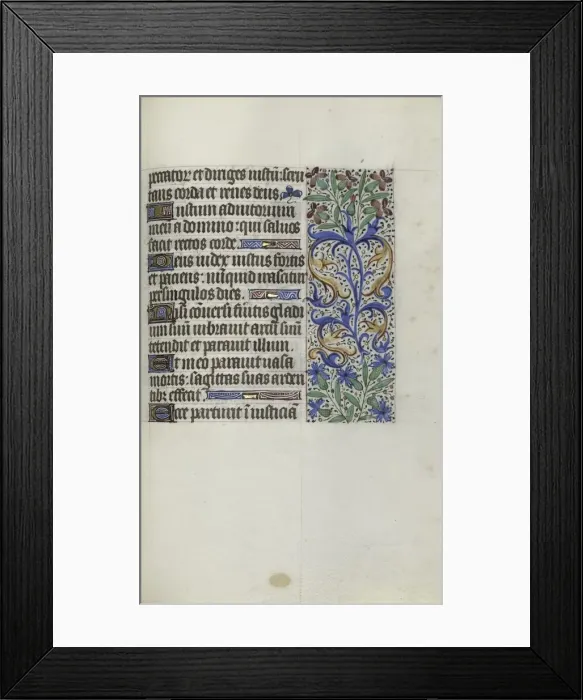 peccatoꝝ et diriges iustū: scru
tans corda et renes deus
Iustum adiutorium
meū a domino: qui saluos
facit rectos corde.
Deus iudex iustus fortis
et paciens: nūquid irascitur
per singulos dies.
Nisi cōuersi fūitis gladi
um suū uibrauit arcū suū
tetendit et parauit illum.
Et in eo parauit uasa
mortis: sagittas suas arden
tibꝫ effecit.
Ecce parturiit īiusticiā